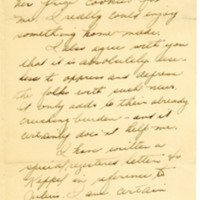 her prize cookies for
me. I really could enjoy
something home made.
I also agree with you
that it is absolutely use-
less to oppress and depress
the folks with such news.
it only adds to their already
crushing burden - and it
certainly does't help me.
I have written a
special registered letter to
in reference to
I am certain